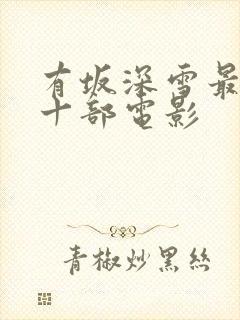 有坂深雪最
十部電影
青椒炒黑絲